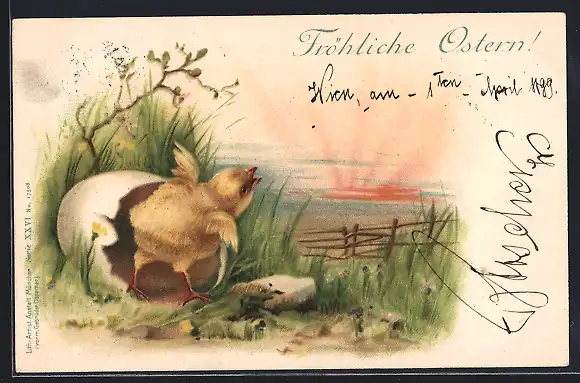 Fröhliche Ostern!
Wien, am - 1ten - April 1899.
Lith.-Artist. Anstalt München
(vorm. Gebrüder Obpacher)
Serie XXVI No.